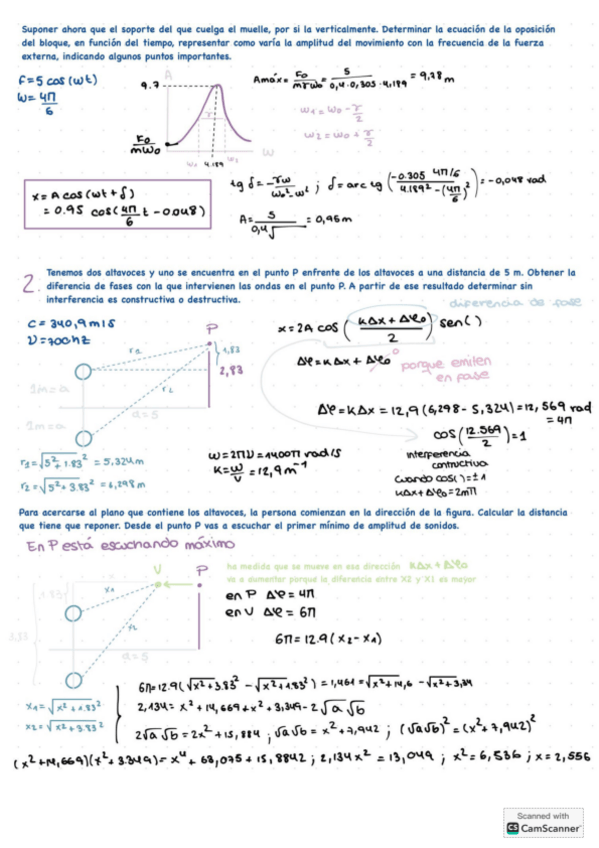 Suponer ahora que el soporte del que cuelga el muelle, por si la verticalmente. Determinar la ecuación de la oposición
del bloque, en función del tiempo, representar como varía la amplitud del movimiento con la frecuencia de la fuerza
externa, indicando algunos puntos importantes.
F=5 cos(ωt)
ω=4π/6
A
9.7
F0/mω0
ω1 4.189 ω2
ω
Amáx= F0/mγω0 = 5/0,4·0,305·4.189 = 9,78m
ω1=ω0-γ/2
ω2=ω0+γ/2
x=A cos(ωt+δ)
=0.95 cos(4π/6 t - 0.048)
tg δ= -γω/ω0²-ω² ; δ=arc tg (-0.305 4π/6 / 4.189²-(4π/6)²) = -0,048 rad
A= 5/0,4√ = 0,95m
2.
Tenemos dos altavoces y uno se encuentra en el punto P enfrente de los altavoces a una distancia de 5 m. Obtener la
diferencia de fases con la que intervienen las ondas en el punto P. A partir de ese resultado determinar sin
interferencia es constructiva o destructiva.
diferencia de fase
c=340,9m/s
ν=700hz
P
r1
1,83
2,83
r2
1m=a
1m=a
a=5
x=2A cos (kΔx+Δφ0 / 2) sen( )
Δφ=kΔx+Δφ0 0 porque emiten
en fase
Δφ=kΔx=12,9(6,298-5,324)=12,569 rad
=4π
cos(12.569/2)=1
r1=√5²+1.83² = 5,324m
r2=√5²+3.83² = 6,298m
ω=2πν=1400π rad/s
k=ω/v=12,9m⁻¹
interperencia
contructiva
cuando cos( )=±1
kΔx+Δφ0=2mπ
Para acercarse al plano que contiene los altavoces, la persona comienza en la dirección de la figura. Calcular la distancia
que tiene que reponer. Desde el punto P vas a escuchar el primer mínimo de amplitud de sonidos.
En P está escuchando máximo
V P
1.83
x1
x2
3,83
a=5
ha medida que se mueve en ese dirección kΔx+Δφ0
va a aumentar porque la diferencia entre X2 y X1 es mayor
en P Δφ=4π
en V Δφ=6π
6π=12.9(x2-x1)
x1=√x²+1.83²
x2=√x²+3.83²
6π=12.9(√x²+3.83² - √x²+1.83²)=1,461=√x²+14,6 - √x²+3,34
2,134=x²+14,669+x²+3,349-2√a√b
2√a√b=2x²+15,884 ; √a√b=x²+7,942 ; (√a√b)²=(x²+7,942)²
(x²+14,669)(x²+3.349)=x⁴+63,075+15,8842 ; 2,134x²=13,049 ; x²=6,536 ; x=2,556
Scanned with
CS CamScanner